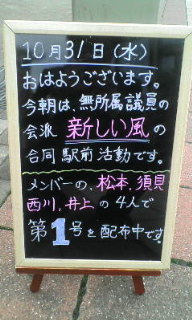 10月31日(水)
おはようございます。
今朝は、無所属議員の
会派 新しい風の
合同駅前活動です。
メンバーの、松本、須貝
西川、井上の4人で
第1号を配布中です。